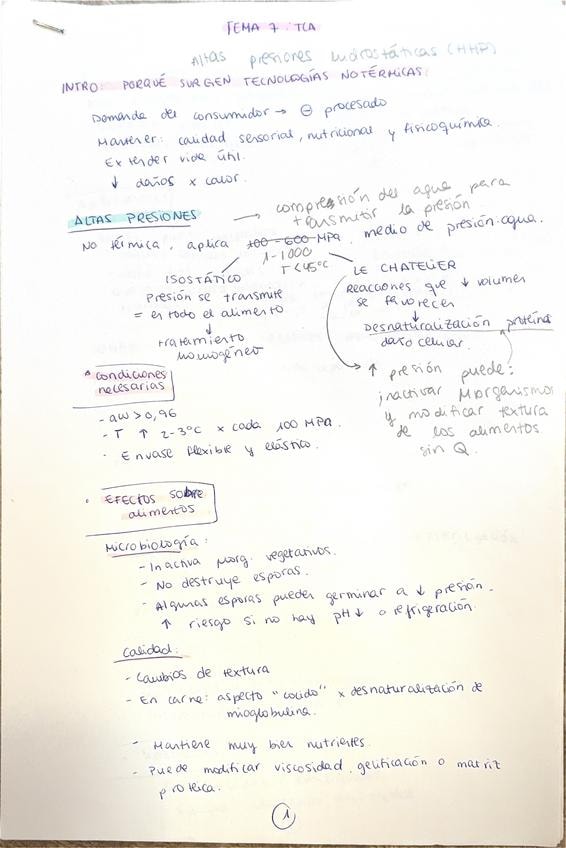 TEMA 7: TCA
Altas presiones hidrostáticas (HHP)
INTRO: PORQUÉ SURGEN TECNOLOGÍAS NO TÉRMICAS:
Demanda del consumidor → ⊖ procesado
Mantener: calidad sensorial, nutricional y fisicoquímica.
Extender vida útil.
↓ daños x calor.
ALTAS PRESIONES → compresión del agua para
transmitir la presión
No térmica, aplica 100-600 MPa, medio de presión: agua.
1-1000
T<45°C
ISOSTÁTICO
Presión se transmite
= en todo el alimento
↓
tratamiento
homogéneo
LE CHATELIER
Reacciones que ↓ volumen
se favorecen
↓
Desnaturalización proteína
daño celular.
→ ↑ presión puede:
inactivar Morganismos
y modificar textura
de los alimentos
sin Q.
Condiciones
necesarias
- aw > 0,96
- T ↑ 2-3°C x cada 100 MPa.
- Envase flexible y elástico.
EFECTOS SOBRE
alimentos
Microbiología:
- Inactiva Morg. vegetativos.
- No destruye esporas.
- Algunas esporas pueden germinar a ↓ presión.
↑ riesgo si no hay pH↓ o refrigeración.
Calidad:
- Cambios de textura
- En carne: aspecto "cocido" x desnaturalización de
mioglobulina.
- Mantiene muy bien nutrientes.
- Puede modificar viscosidad, gelificación o matriz
proteica.
1